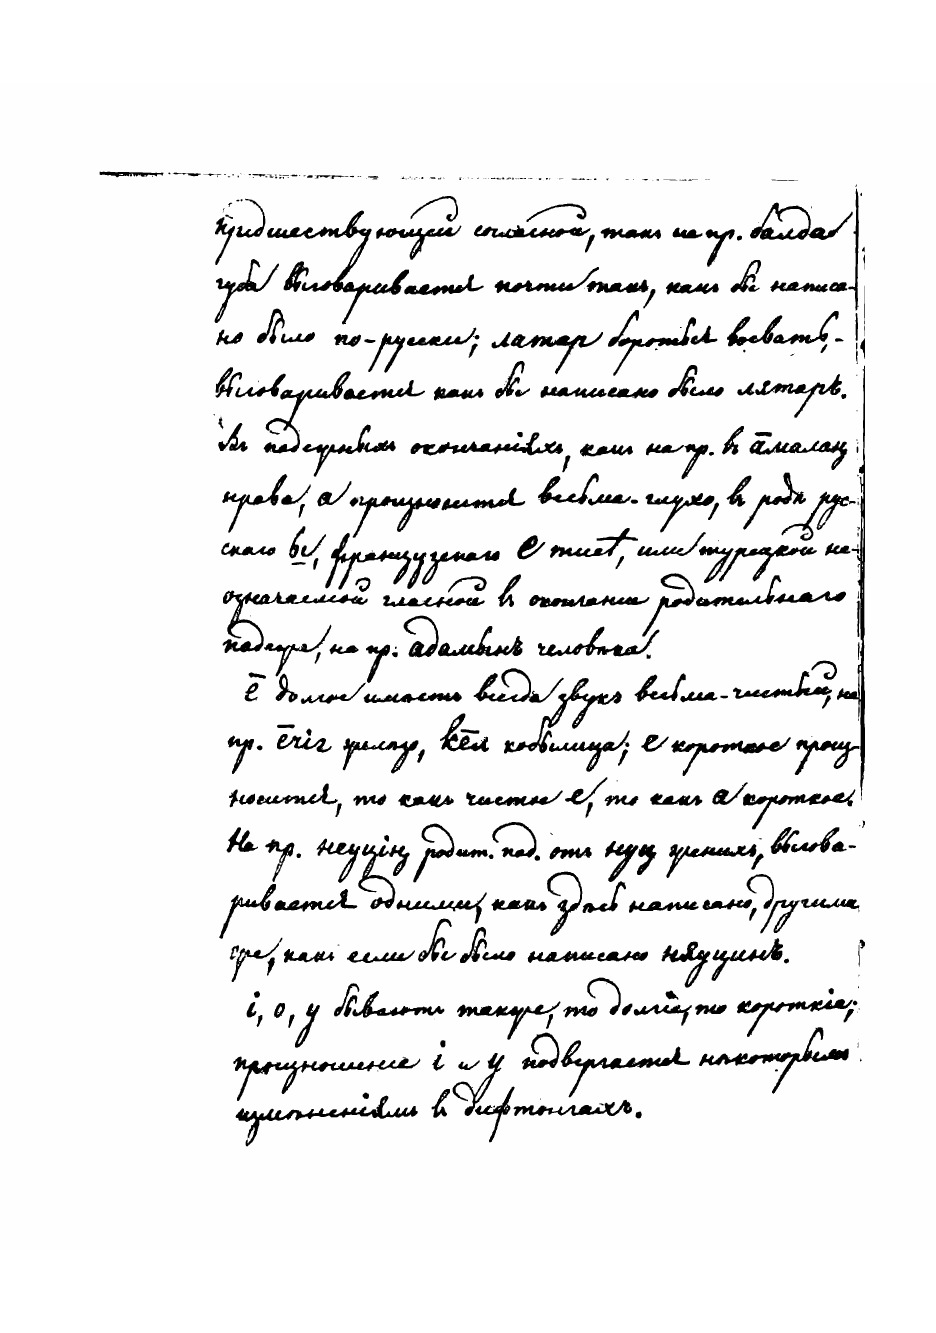 предшествующей согласной, такъ на пр. балдаг
губа выговаривается почти такъ, какъ бы написа-
но было по-русски; латар бороться воевать,-
выговаривается какъ бы написано было лятаръ.
Въ падежныхъ окончаніяхъ, какъ на пр. въ а̄малаң
нрава, а произносится весьма-глухо, въ родѣ рус-
скаго ы, французскаго e muet, или турецкой не-
означаемой гласной въ окончаніи родительнаго
падежа, на пр. адамынъ человѣка.
е̄ долгое имѣетъ всегда звукъ весьма-чистый, на
пр. е̄чіг желѣзо, ке̄л кобылица; е короткое произ-
носится, то какъ чистое е, то какъ а короткое.
На пр. неуцің родит. пад. отъ нуц грѣхъ, выгова-
ривается одними, какъ здѣсь написано, другими
же, какъ если бы было написано няуцинъ.
і, о, у бываютъ также, то долгіе, то короткіе;
произношеніе і и у подвергается нѣкоторымъ
измѣненіямъ въ дифтонгахъ.